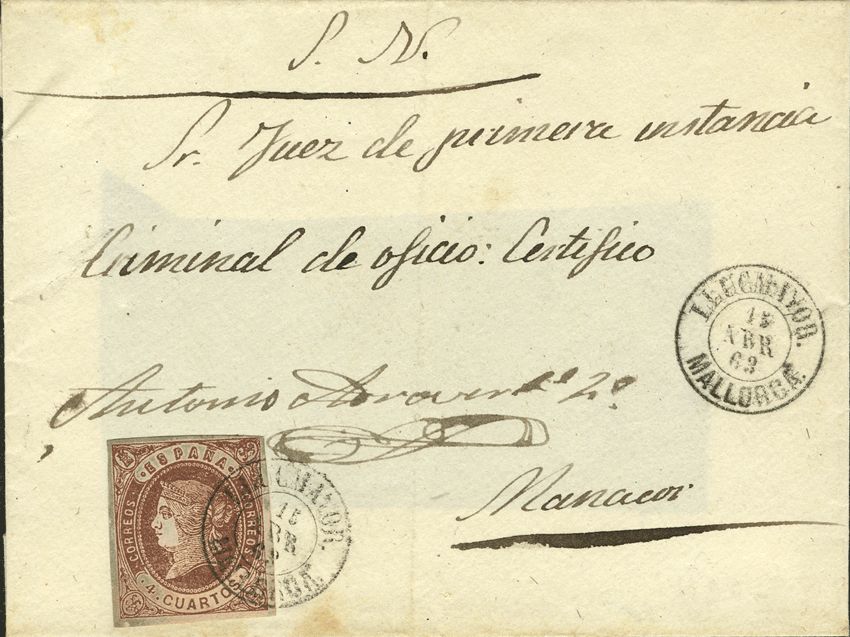 S. N.
Sr. Juez de primera instancia
Criminal de oficio: Certifico
LLUCMAYOR.
15
ABR
63
MALLORCA.
Antonio
2º
Manacor
ESPAÑA
CORREOS
CORREOS
4 CUARTOS
LLUCMAYOR.
15
ABR
63
MALLORCA.